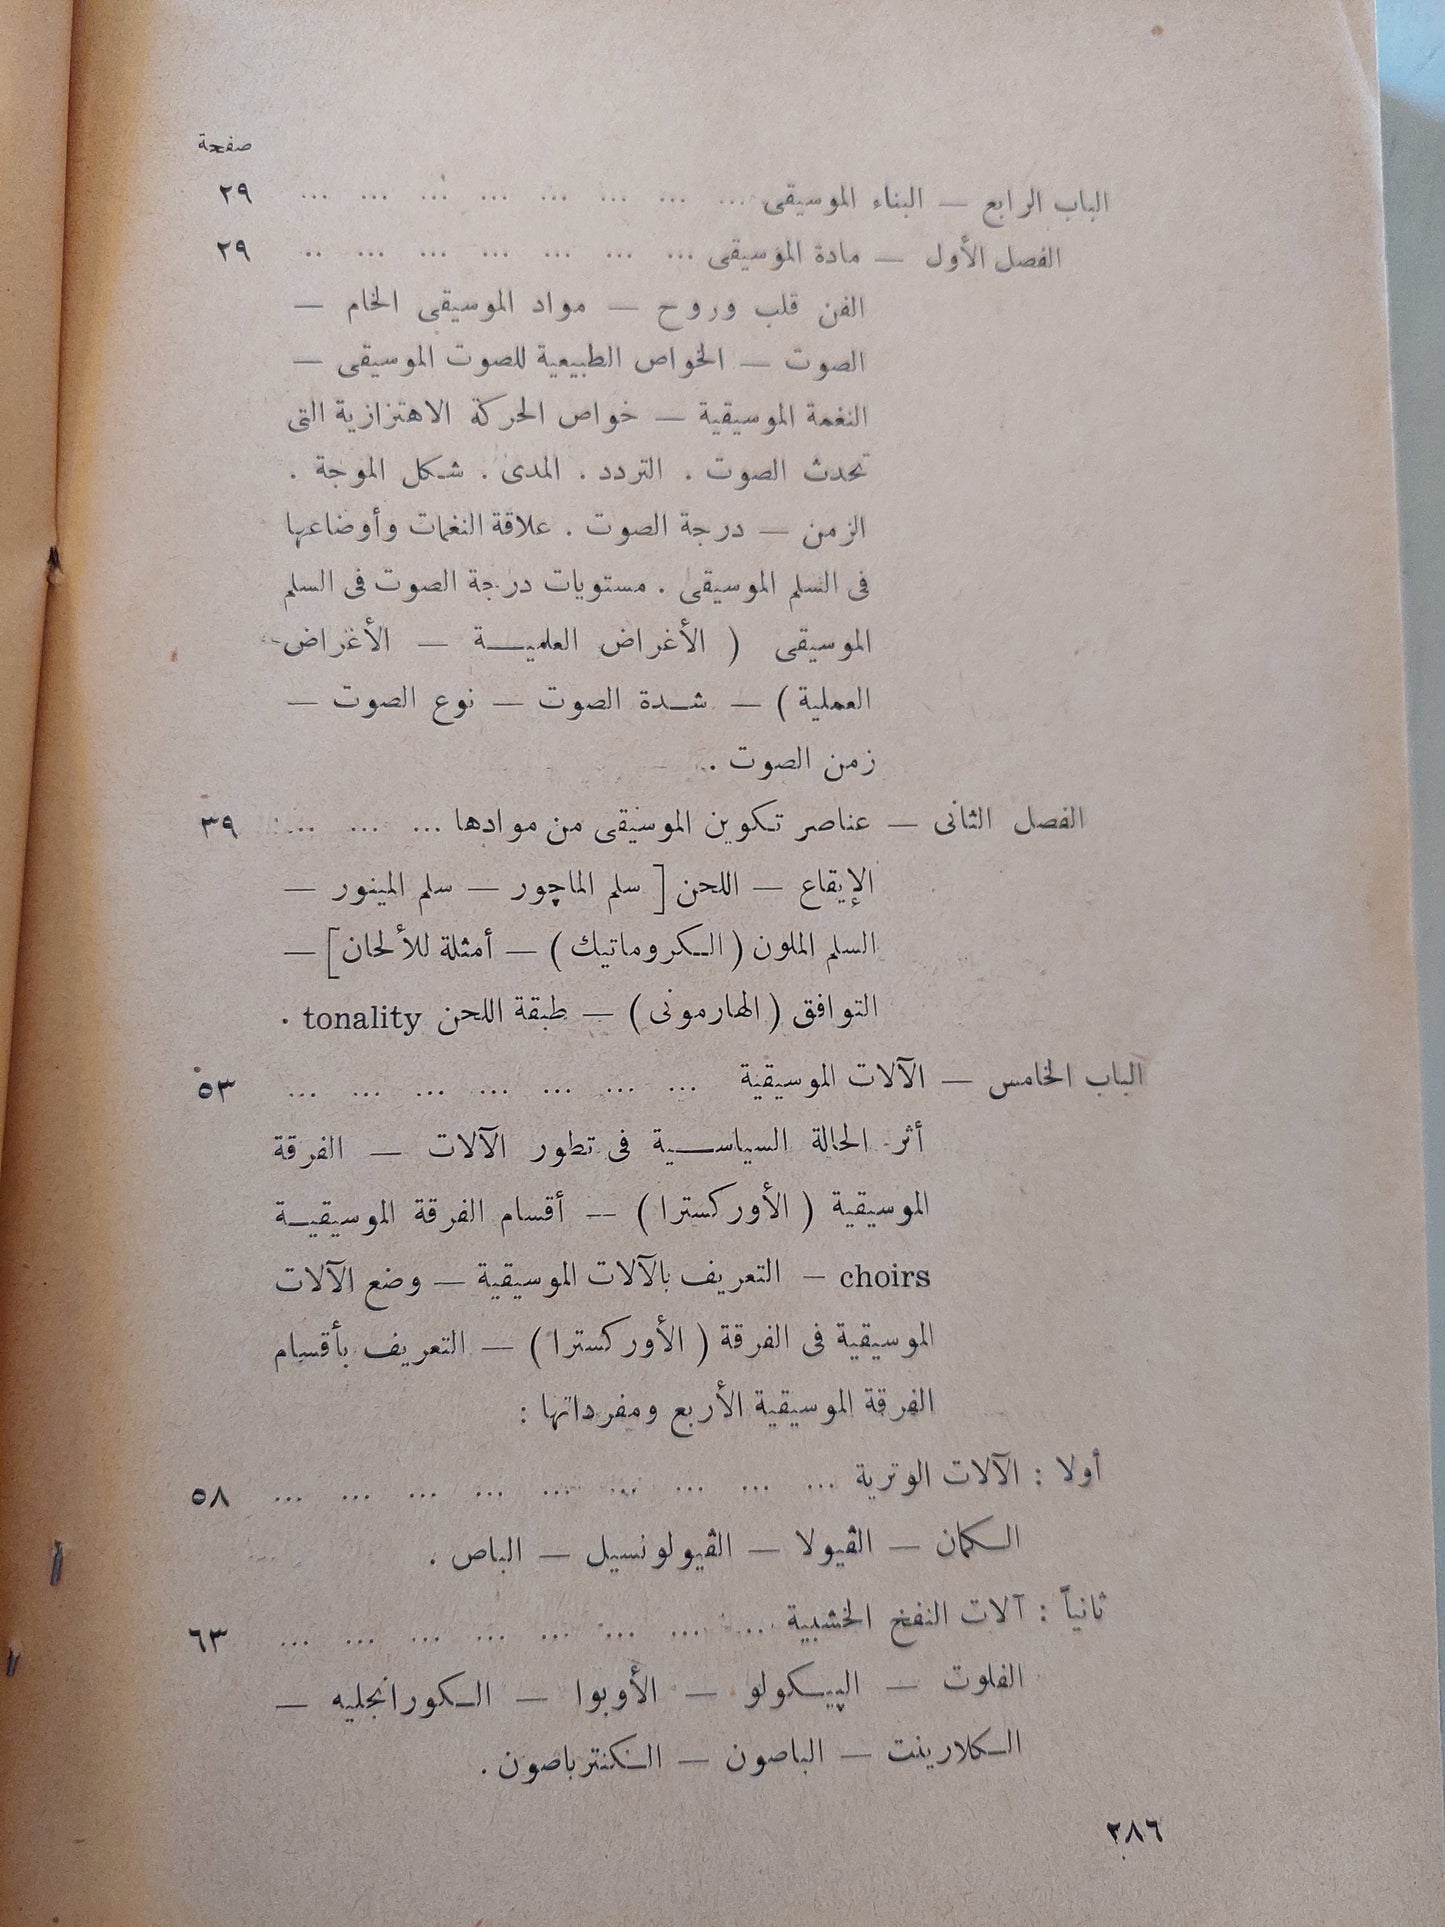 صفحة
الباب الرابع — البناء الموسيقى ... ... ... ... ... ... ... ... ٢٩
الفصل الأول — مادة الموسيقى ... ... ... ... ... ... .. ٢٩
الفن قلب وروح — مواد الموسيقى الخام —
الصوت — الخواص الطبيعية للصوت الموسيقى —
النغمة الموسيقية — خواص الحركة الاهتزازية التى
تحدث الصوت . التردد . المدى . شكل الموجة .
الزمن — درجة الصوت . علاقة النغمات وأوضاعها
فى السلم الموسيقى . مستويات درجة الصوت فى السلم
الموسيقى ( الأغراض العلميـــة — الأغراض
العملية ) — شــدة الصوت — نوع الصوت —
زمن الصوت .
الفصل الثانى — عناصر تكوين الموسيقى من موادها ... ... ... ٣٩
الإيقاع — اللحن [ سلم الماچور — سلم المينور —
السلم الملون ( الكروماتيك ) — أمثلة للألحان ] —
التوافق ( الهارمونى ) — طبقة اللحن tonality .
الباب الخامس — الآلات الموسيقية ... ... ... ... ... ... ... ٥٣
أثر الحالة السياســية فى تطور الآلات — الفرقة
الموسيقية ( الأوركسترا ) — أقسام الفرقة الموسيقيــة
choirs — التعريف بالآلات الموسيقية — وضع الآلات
الموسيقية فى الفرقة ( الأوركسترا ) — التعريف بأقسام
الفرقة الموسيقية الأربع ومفرداتها :
أولا : الآلات الوترية ... ... ... ... ... ... ... ... ... ٥٨
الكمان — الڤيولا — الڤيولونسيل — الباص .
ثانياً : آلات النفخ الخشبية ... ... ... ... ... ... ... ... ٦٣
الفلوت — الپيكولو — الأوبوا — الكورانجليه —
الكلارينت — الباصون — الكنترباصون .
٢٨٦